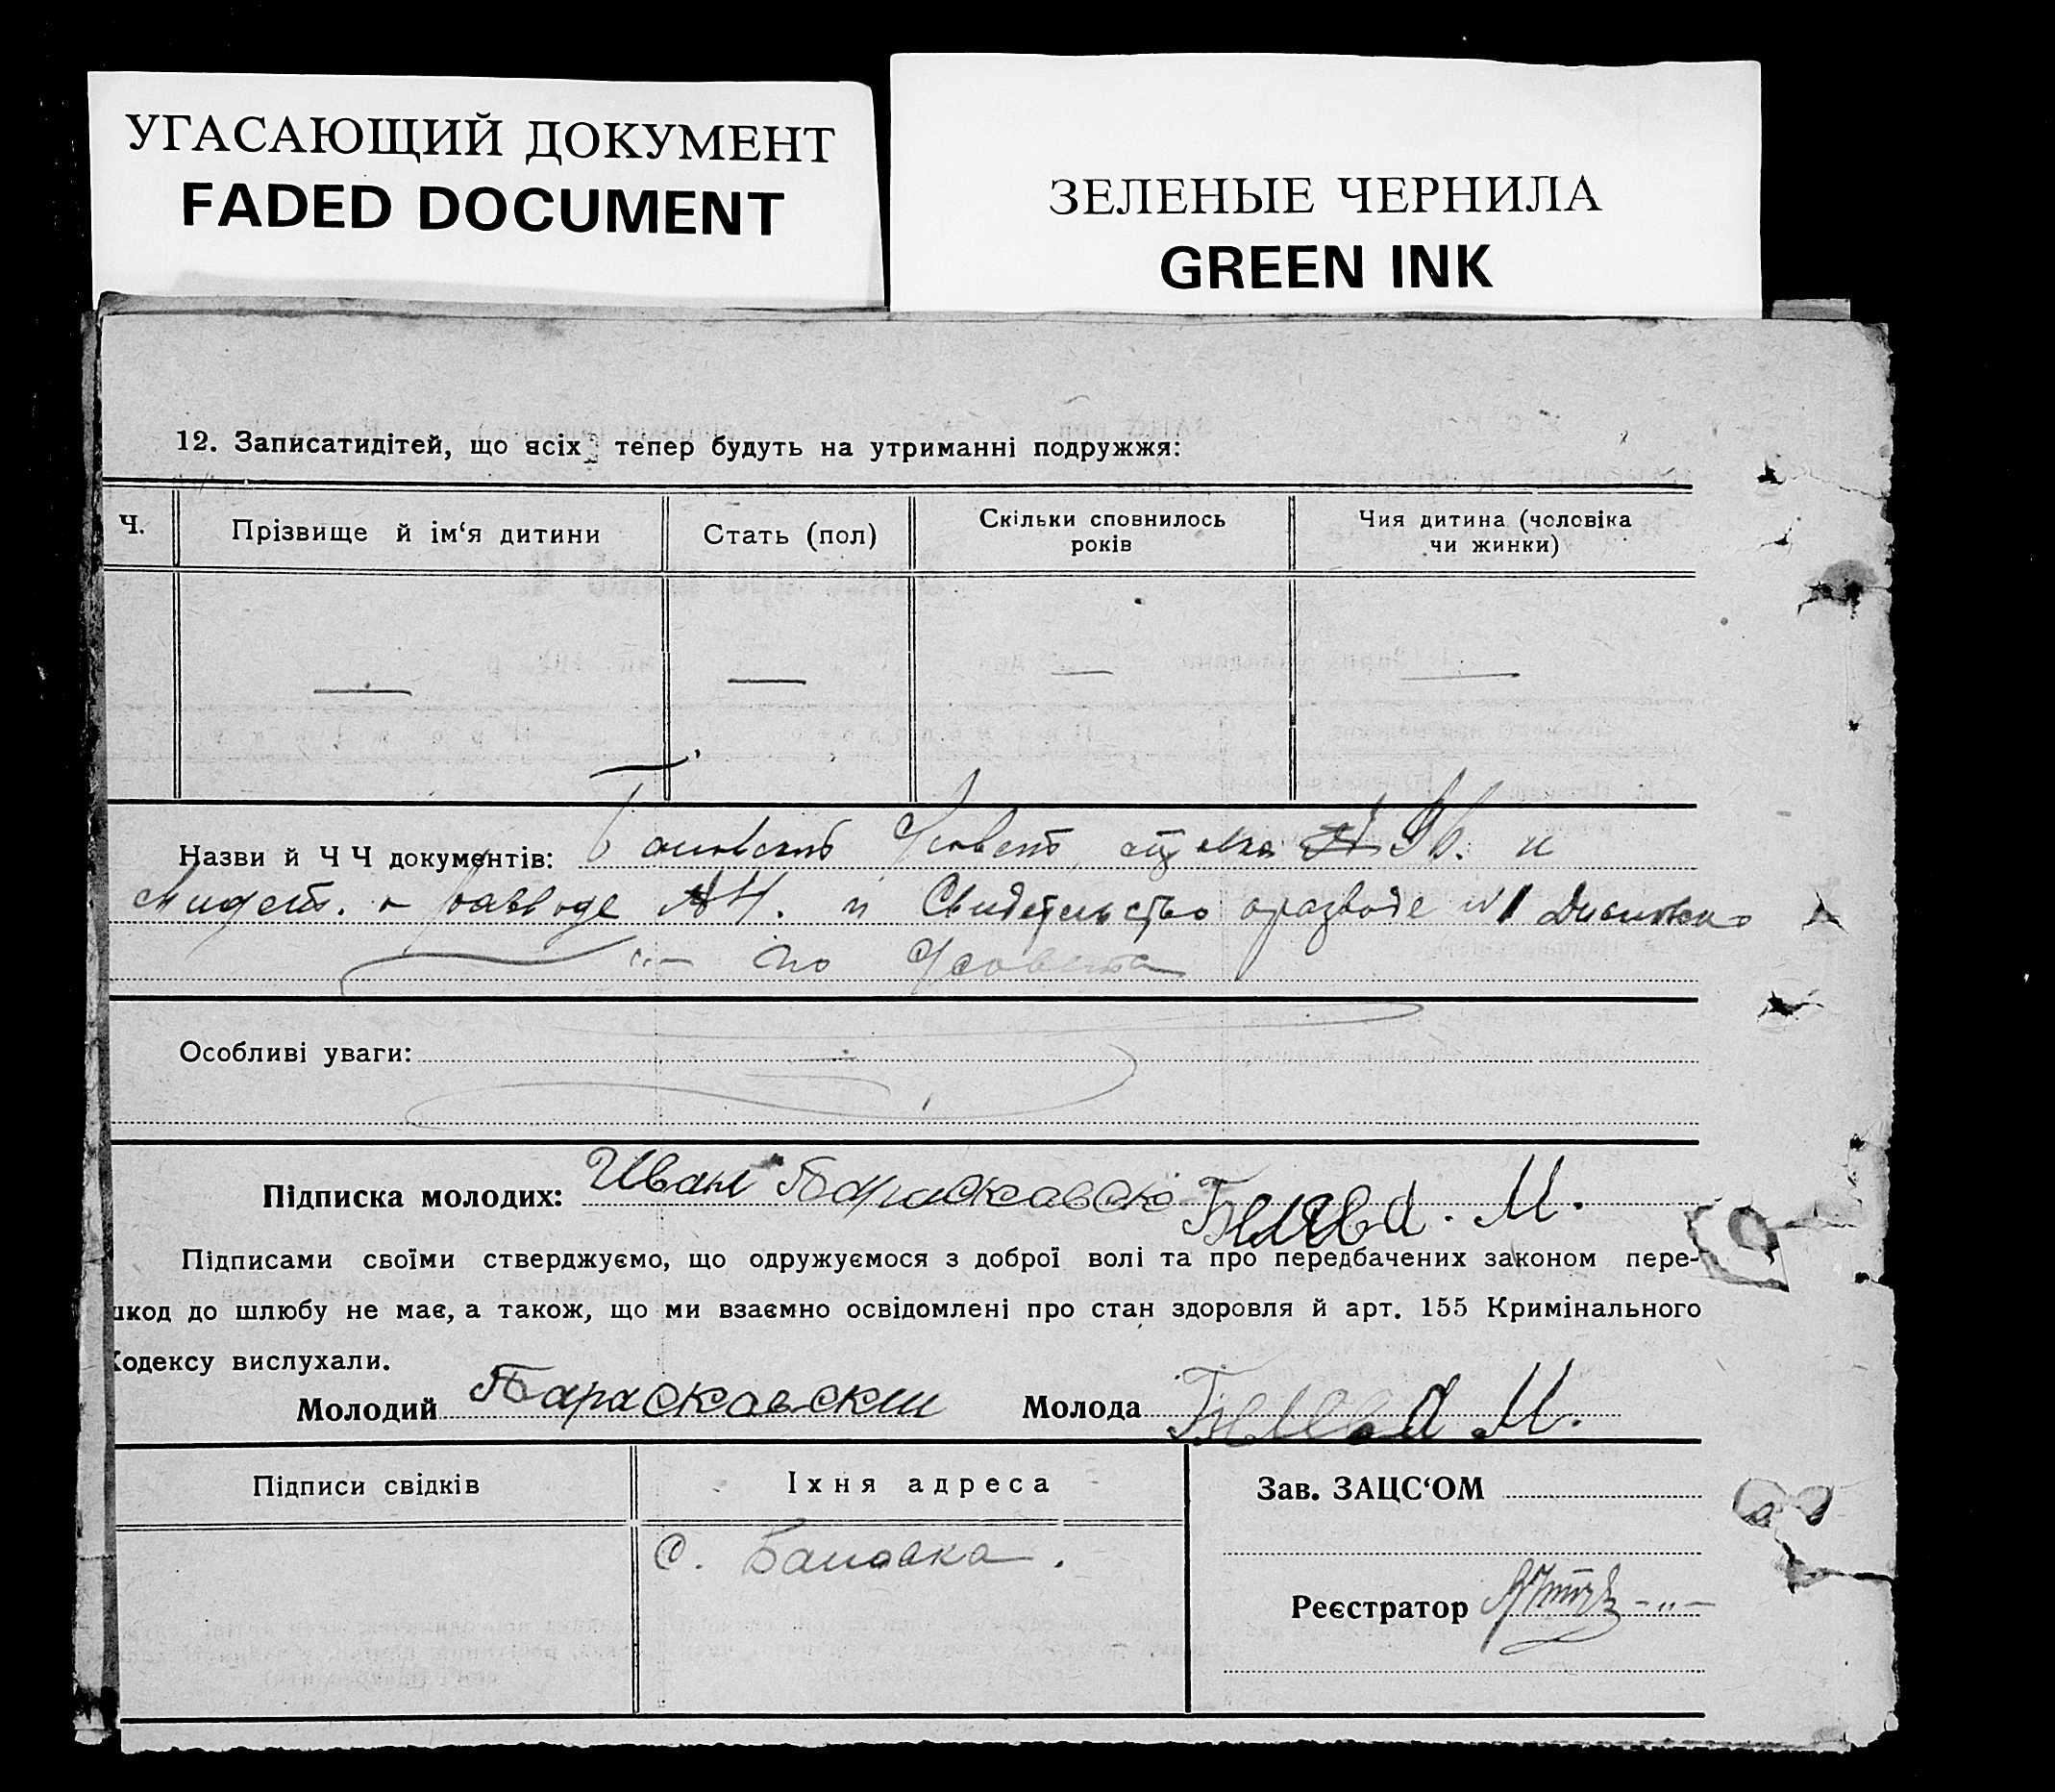 УГАСАЮЩИЙ ДОКУМЕНТ
FADED DOCUMENT
ЗЕЛЕНЫЕ ЧЕРНИЛА
GREEN INK
12. Записатидітей, що всіх тепер будуть на утриманні подружжя:
Ч.
Прізвище й ім‘я дитини
Стать (пол)
Скільки сповнилось
років
Чия дитина (чоловіка
чи жинки)
— — — —
Назви й Ч Ч документів: № и
о разводе №4. и Свидетельство о разводе №1
—"— го
Особливі уваги:
Підписка молодих: Иван Параскавск Белева. М.
Підписами своїми стверджуємо, що одружуємося з доброї волі та про передбачених законом пере-
шкод до шлюбу не має, а також, що ми взаємно освідомлені про стан здоровля й арт. 155 Кримінального
Кодексу вислухали.
Молодий Параскавски Молода Белева М.
Підписи свідків
Іхня адреса
Зав. ЗАЦС‘ОМ
С. Бановка.
Реєстратор —"—